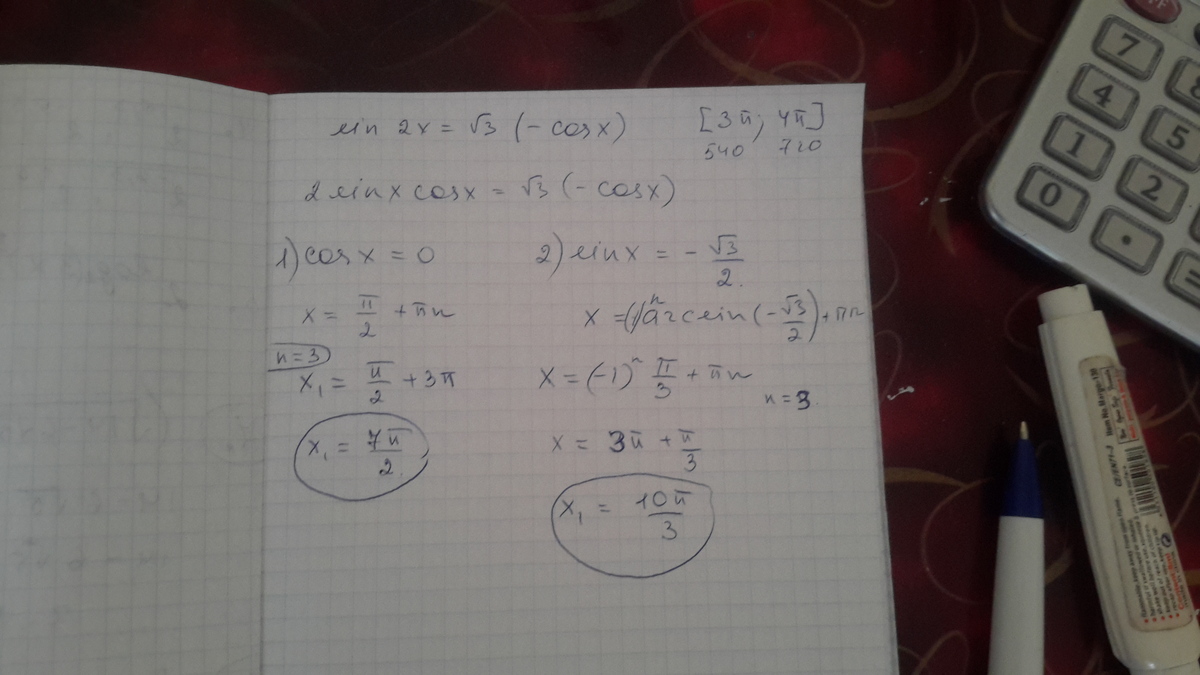 sin 2x = √3 (- cosx) [3π; 4π]
540 720
2 sinx cosx = √3 (- cosx)
1) cos x = 0
x = π/2 + πn
n = 3
x₁ = π/2 + 3π
x₁ = 7π/2.
2) sinx = - √3/2.
x = (-1)ⁿ arcsin (- √3/2) + πn
x = (-1)ⁿ π/3 + πn
n = 3.
x = 3π + π/3
x₁ = 10π/3
7
4
1
5
0
2
.
=